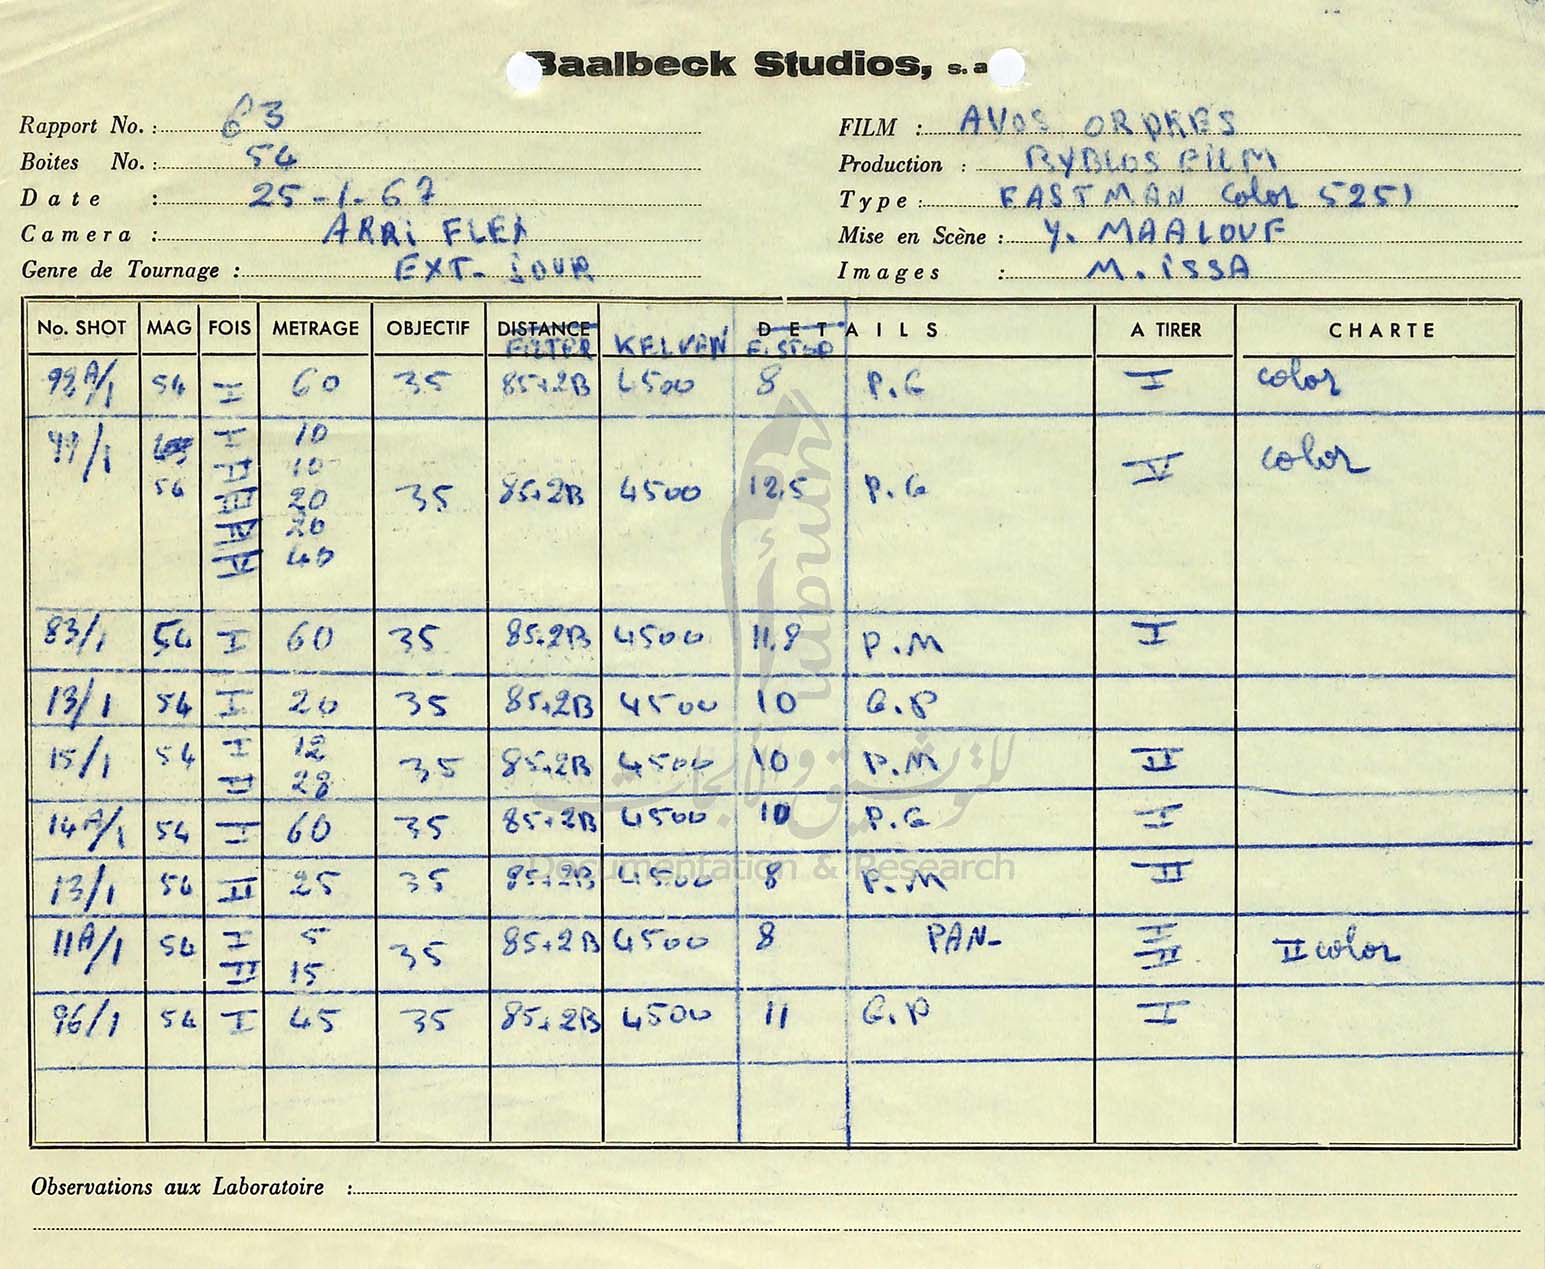 Baalbeck Studios, s. a
Rapport No. : 63
Boites No. : 54
Date : 25-1-67
Camera : ARRi FLEX
Genre de Tournage : EXT- jOUR
FILM : AVOS ORDRES
Production : BYBLOS FiLM
Type : EASTMAN Color 5251
Mise en Scène : Y. MAALOUF
Images : M. iSSA
No. SHOT MAG FOIS METRAGE OBJECTIF DISTANCE DETAILS A TIRER CHARTE
FiLTER KELVEN F. STOP
92A/1 54 I 60 35 85+2B 4500 8 P.G I color
99/1 54 I 10 35 85+2B 4500 12.5 P.G V color
II 10
III 20
IV 20
V 40
83/1 54 I 60 35 85+2B 4500 11.8 P.M I
13/1 54 I 20 35 85+2B 4500 10 G.P
15/1 54 I 12 35 85+2B 4500 10 P.M II
II 28
14A/1 54 I 60 35 85+2B 4500 10 P.G I
13/1 54 II 25 35 85+2B 4500 8 P.M II
11A/1 54 I 5 35 85+2B 4500 8 PAN- I
15 II II color
96/1 54 I 45 35 85+2B 4500 11 G.P I
Observations aux Laboratoire :
umam
للتوثيق والأبحاث
Documentation & Research